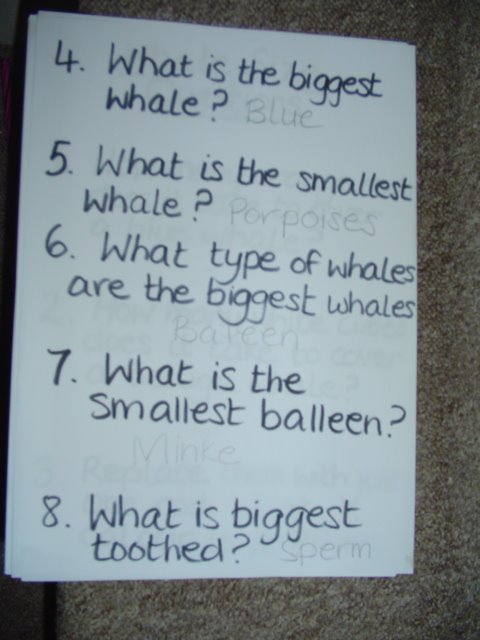 4. What is the biggest
whale? Blue
5. What is the smallest
whale? Porpoises
6. What type of whales
are the biggest whales
Baleen
7. What is the
smallest balleen?
Minke
8. What is biggest
toothed? Sperm